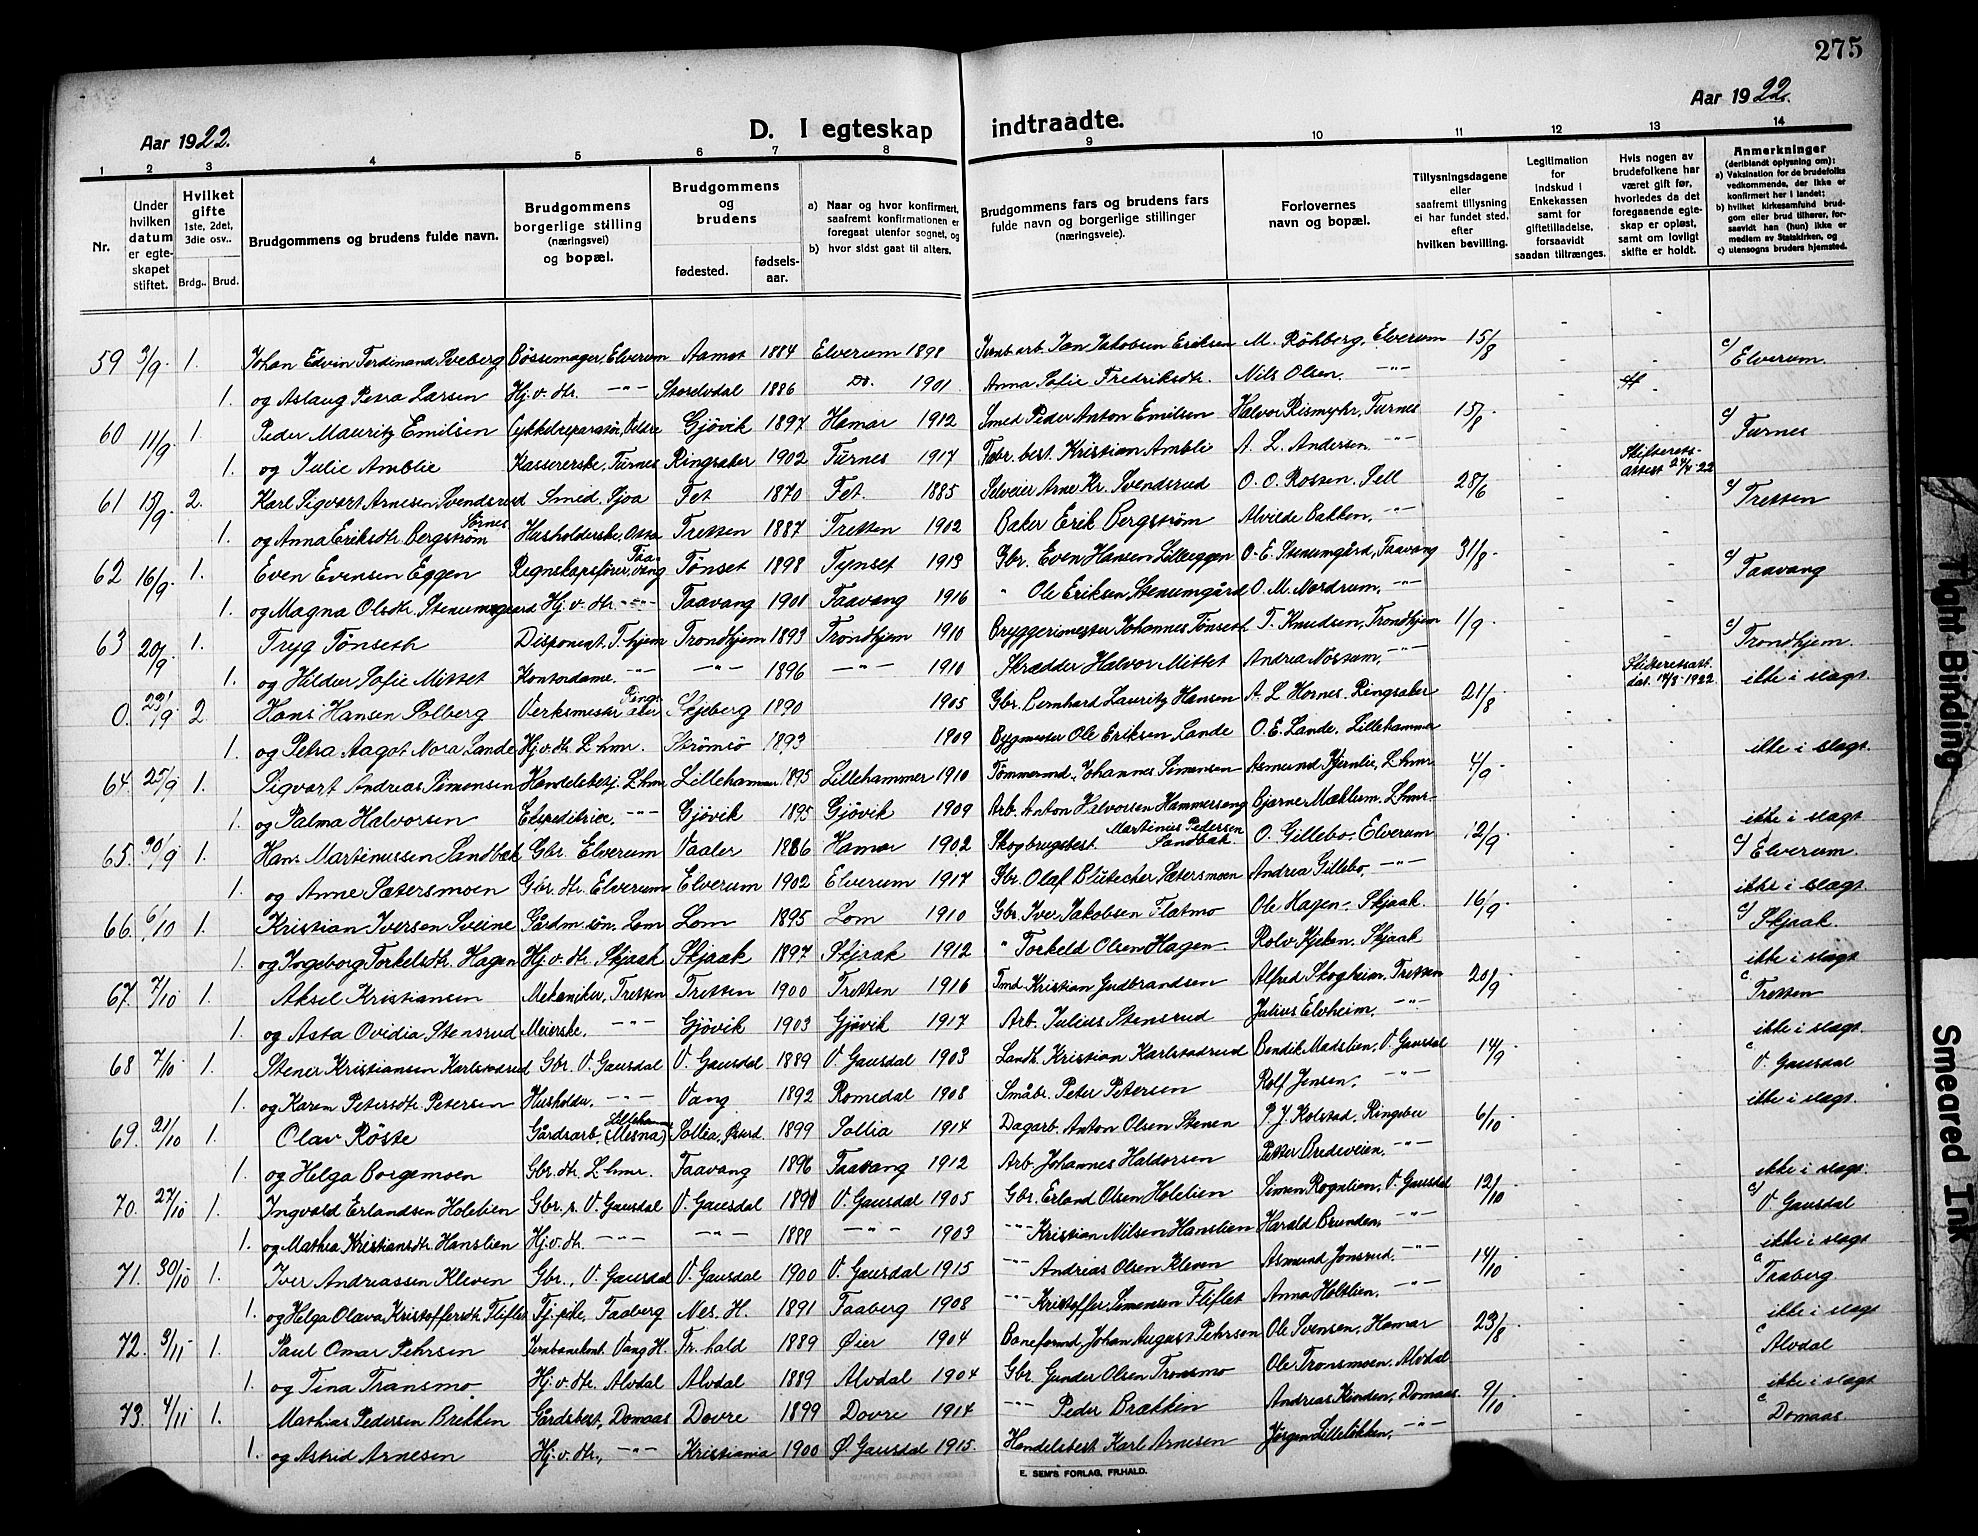 275
Aar 1922.
Aar 1922.
D. I egteskap indtraadte.
1 2 3 4 5 6 7 8 9 10 11 12 13 14
Nr.
Under hvilken datum er egteskapet stiftet.
Hvilket gifte 1ste, 2det, 3die osv..
Brdg.. Brud.
Brudgommens og brudens fulde navn.
Brudgommens borgerlige stilling (næringsvei) og bopæl.
Brudgommens og brudens
fødested.
fødselsaar.
a) Naar og hvor konfirmert, saafremt konfirmationen er foregaat utenfor sognet, og
b) hvor sidst gaat til alters.
Brudgommens fars og brudens fars fulde navn og borgerlige stillinger (næringsveie).
Forlovernes navn og bopæl.
Tillysningsdagene eller saafremt tillysning ei har fundet sted, efter hvilken bevilling.
Legitimation for Indskud i Enkekassen samt for giftetilladelse, forsaavidt saadan tiltrænges.
Hvis nogen av brudefolkene har været gift før, hvorledes da det foregaaende egteskap er opløst, samt om lovligt skifte er holdt.
Anmerkninger (deriblandt oplysning om):
a) Vaksination for de brudefolks vedkommende, der ikke er konfirmert her i landet;
b) hvilket kirkesamfund brudgom eller brud tilhører, forsaavidt han (hun) ikke er medlem av Statskirken, og
c) utensogns bruders hjemsted.
59 3/9. 1. Johan Edvin Ferdinand Sveberg Bøssemager, Elverum Aamot 1884 Elverum 1898 Jernb.arb. Jan Jakobsen Eriksen M. Röhberg, Elverum 15/8 - - c/ Elverum.
1. og Aslaug Petra Larsen Hj.v.dtr. -"- Stordal 1886 Do. 1901 Anna Sofie Fredriksdtr. Nils Olsen. -"-
60 11/9 1. Peder Mauritz Emilsen Cykkelreparatør, Veldre Gjövik 1897 Hamar 1912 Smed Peder Anton Emilsen Halvor Rismyhr, Furnes 15/8 - c/ Furnes
1. og Julie Amblie Kassererske, Furnes Ringsaker 1902 Furnes 1917 Fabr. best. Kristian Ambli A. L. Andersen. -"- Skifteretsattest 24/4-22
61 15/9 2. Karl Sigvart Arnesen Svendsrud Smed, Sjoa Fet 1870 Fet. 1885 Selveier Arne Kr. Svendsrud O. O. Rossen. Sell 28/6 c/ Tretten
1. og Anna Eriksdtr. Bergström Husholderske, Tretten 1887 Tretten 1902 Baker Erik Bergström Alvilde Bakken, -"-
62 16/9. 1. Even Evensen Eggen Regnskapsfører, Faavang Tönset 1898 Tynset 1913 Gbr. Even Hansen Lilleeggen O. E. Stenumgård, Faavang 31/8 - c/ Faavang
1. og Magna Olsdtr. Stenumgaard Hj.v.dtr. -"- Faavang 1901 Faavang 1916 " Ole Eriksen Stenumgård O. M. Nordrum, -"-
63 20/9 1. Tryg Tönseth Disponent, T.hjem Trondhjem 1893 Trondhjem 1910 Bryggerimester Johannes Tönseth T. Knudsen, Trondhjem 1/9 - c/ Trondhjem
1. og Hildur Sofie Mittet Kontordame. -"- -"- 1896 -"- 1910 Skrædder Halvor Mittet Andrea Nossum, -"- ikke i slægt
0. 23/9 2 Hans Hansen Solberg Verksmester Ringsaker Skjeberg 1890 1905 Gbr. Bernhard Lauritz Hansen A. L. Hornes, Ringsaker 21/8 Skifteretsatt. dat. 14/8-1922
1. og Petra Aagot Nora Lande Hj.v.dtr. L.hmr. Strömsö 1893 1909 Bygmester Ole Eriksen Lande O. E. Lande, Lillehammer ikke i slægt.
64. 25/9 1. Sigvart Andreas Simonsen Handelsbetj. L.hmr Lillehammer 1895 Lillehammer 1910 Tömmermd. Johannes Simonsen Asmund Hjernlie, L.hmr. 4/9 -
1. og Palma Halvorsen Ekspeditrice, -"- Gjövik 1895 Gjövik 1909 Arb. Anton Halvorsen Hammerseng Bjarne Mæhlum. L.hmr. ikke i slægt
65. 30/9 1. Hans Martinussen Sandbæk Gbr. Elverum Vaaler 1886 Hamar 1902 Skogbrugebest. Martinus Pedersen Sandbæk. O. Gillebo, Elverum 12/9 c/ Elverum.
1. og Anne Sætersmoen Gbr. dtr. Elverum Elverum 1902 Elverum 1917 Gbr. Olaf Blütecher Sætersmoen Andrea Gillebo, -"- ikke i slægt.
66. 6/10 1. Kristian Iversen Sveine Gårdm.sön, Lom Lom 1895 Lom 1910 Gbr. Iver Jakobsen Flatmo Ole Hagen. Skjaak. 16/9 - c/ Skjaak.
1. og Ingeborg Torkelsdtr. Hagen Hj.v.dtr. Skjaak Skjaak 1897 Skjaak 1912 " Torkeld Olsen Hagen Rolv Kjeken. Skjaak ikke i slægt.
67. 7/10 1. Aksel Kristiansen Mekaniker, Tretten Tretten 1900 Tretten 1916 Tmd. Kristian Gudbrandsen Alfred Skogheim, Tretten 20/9 - c Tretten
1. og Asta Ovidia Stensrud Meierske. -"- Gjövik 1903 Gjövik 1917 Arb. Julius Stensrud Julius Elvheim, -"- ikke i slægt.
68 7/10 1. Stener Kristiansen Karlstadrud Gbr. V. Gausdal V. Gausdal 1889 V. Gausdal 1903 Landh. Kristian Karlstadrud Bendik Madslien, V. Gausdal 14/9 c V. Gausdal
1. og Karen Petersdtr. Petersen Husholdn. -"- Vang 1892 Romedal 1908 Småbr. Peter Petersen Rolf Jensen, -"- ikke i slægt.
69. 21/10 1. Olav Röste Gårdsarb. Lillehammer (Mesna) Sollia, Österd. 1899 Sollia 1914 Dagarb. Anton Olsen Stenen P. J. Kolstad, Ringebu 6/10 -
1. og Helga Borgemoen Gbr. dtr. L.hmr. Faavang 1896 Faavang 1912 Arb. Johannes Haldorsen Petter Bredeveien, -"- ikke i slægt.
70. 27/10 1. Ingvald Erlandsen Holelien Gbr. s. V. Gausdal V. Gausdal 1890 V. Gausdal 1905 Gbr. Erland Olsen Holelien Simen Rognlien, V. Gausdal 12/10 - c/ V. Gausdal
1. og Mathea Kristiansdtr. Hanslien Hj.v.dtr. -"- -"- 1888 -"- 1903 -"- Kristian Nilsen Hanslien Harald Brenden, -"- ikke i slægt
71. 30/10 1. Iver Andreassen Kleven Gbr., V. Gausdal V. Gausdal 1900 V. Gausdal 1915 -"- Andreas Olsen Kleven Asmund Jonsrud. -"- 14/10 - c Faaberg.
1. og Helga Olava Kristoffersdtr. Fliflet Tj.pike, Faaberg Nes. H. 1891 Faaberg 1908 -"- Kristoffer Simensen Fliflet Anna Holtlien, -"- ikke i slægt
72. 3/11 1. Paul Omar Pehrsen Jernbanekont. Vang H. Fr.hald 1889 Øier 1904 Baneformd. Johan August Pehrson Ole Svensen, Hamar 23/8 - c Alvdal
1. og Tina Transmo Hj.v.dtr. Alvdal Alvdal 1889 Alvdal 1904 Gbr. Gunder Olsen Tronsmo Ole Tronsmoen, Alvdal ikke i slægt
73. 4/11 1. Mathias Pedersen Brekken Gårdsbest, Domaas Dovre 1899 Dovre 1914 -"- Peder Brækken Andreas Kinden, Domaas. 9/10 - c Domaas.
1. og Astrid Arnesen Hj.v.dtr., -"- Kristiania 1900 Ø. Gausdal 1915. Handelsbest. Karl Arnesen Jörgen Lillelökken, -"-
E. SEM'S FORLAG, FR.HALD.
Tight Binding
Smeared Ink